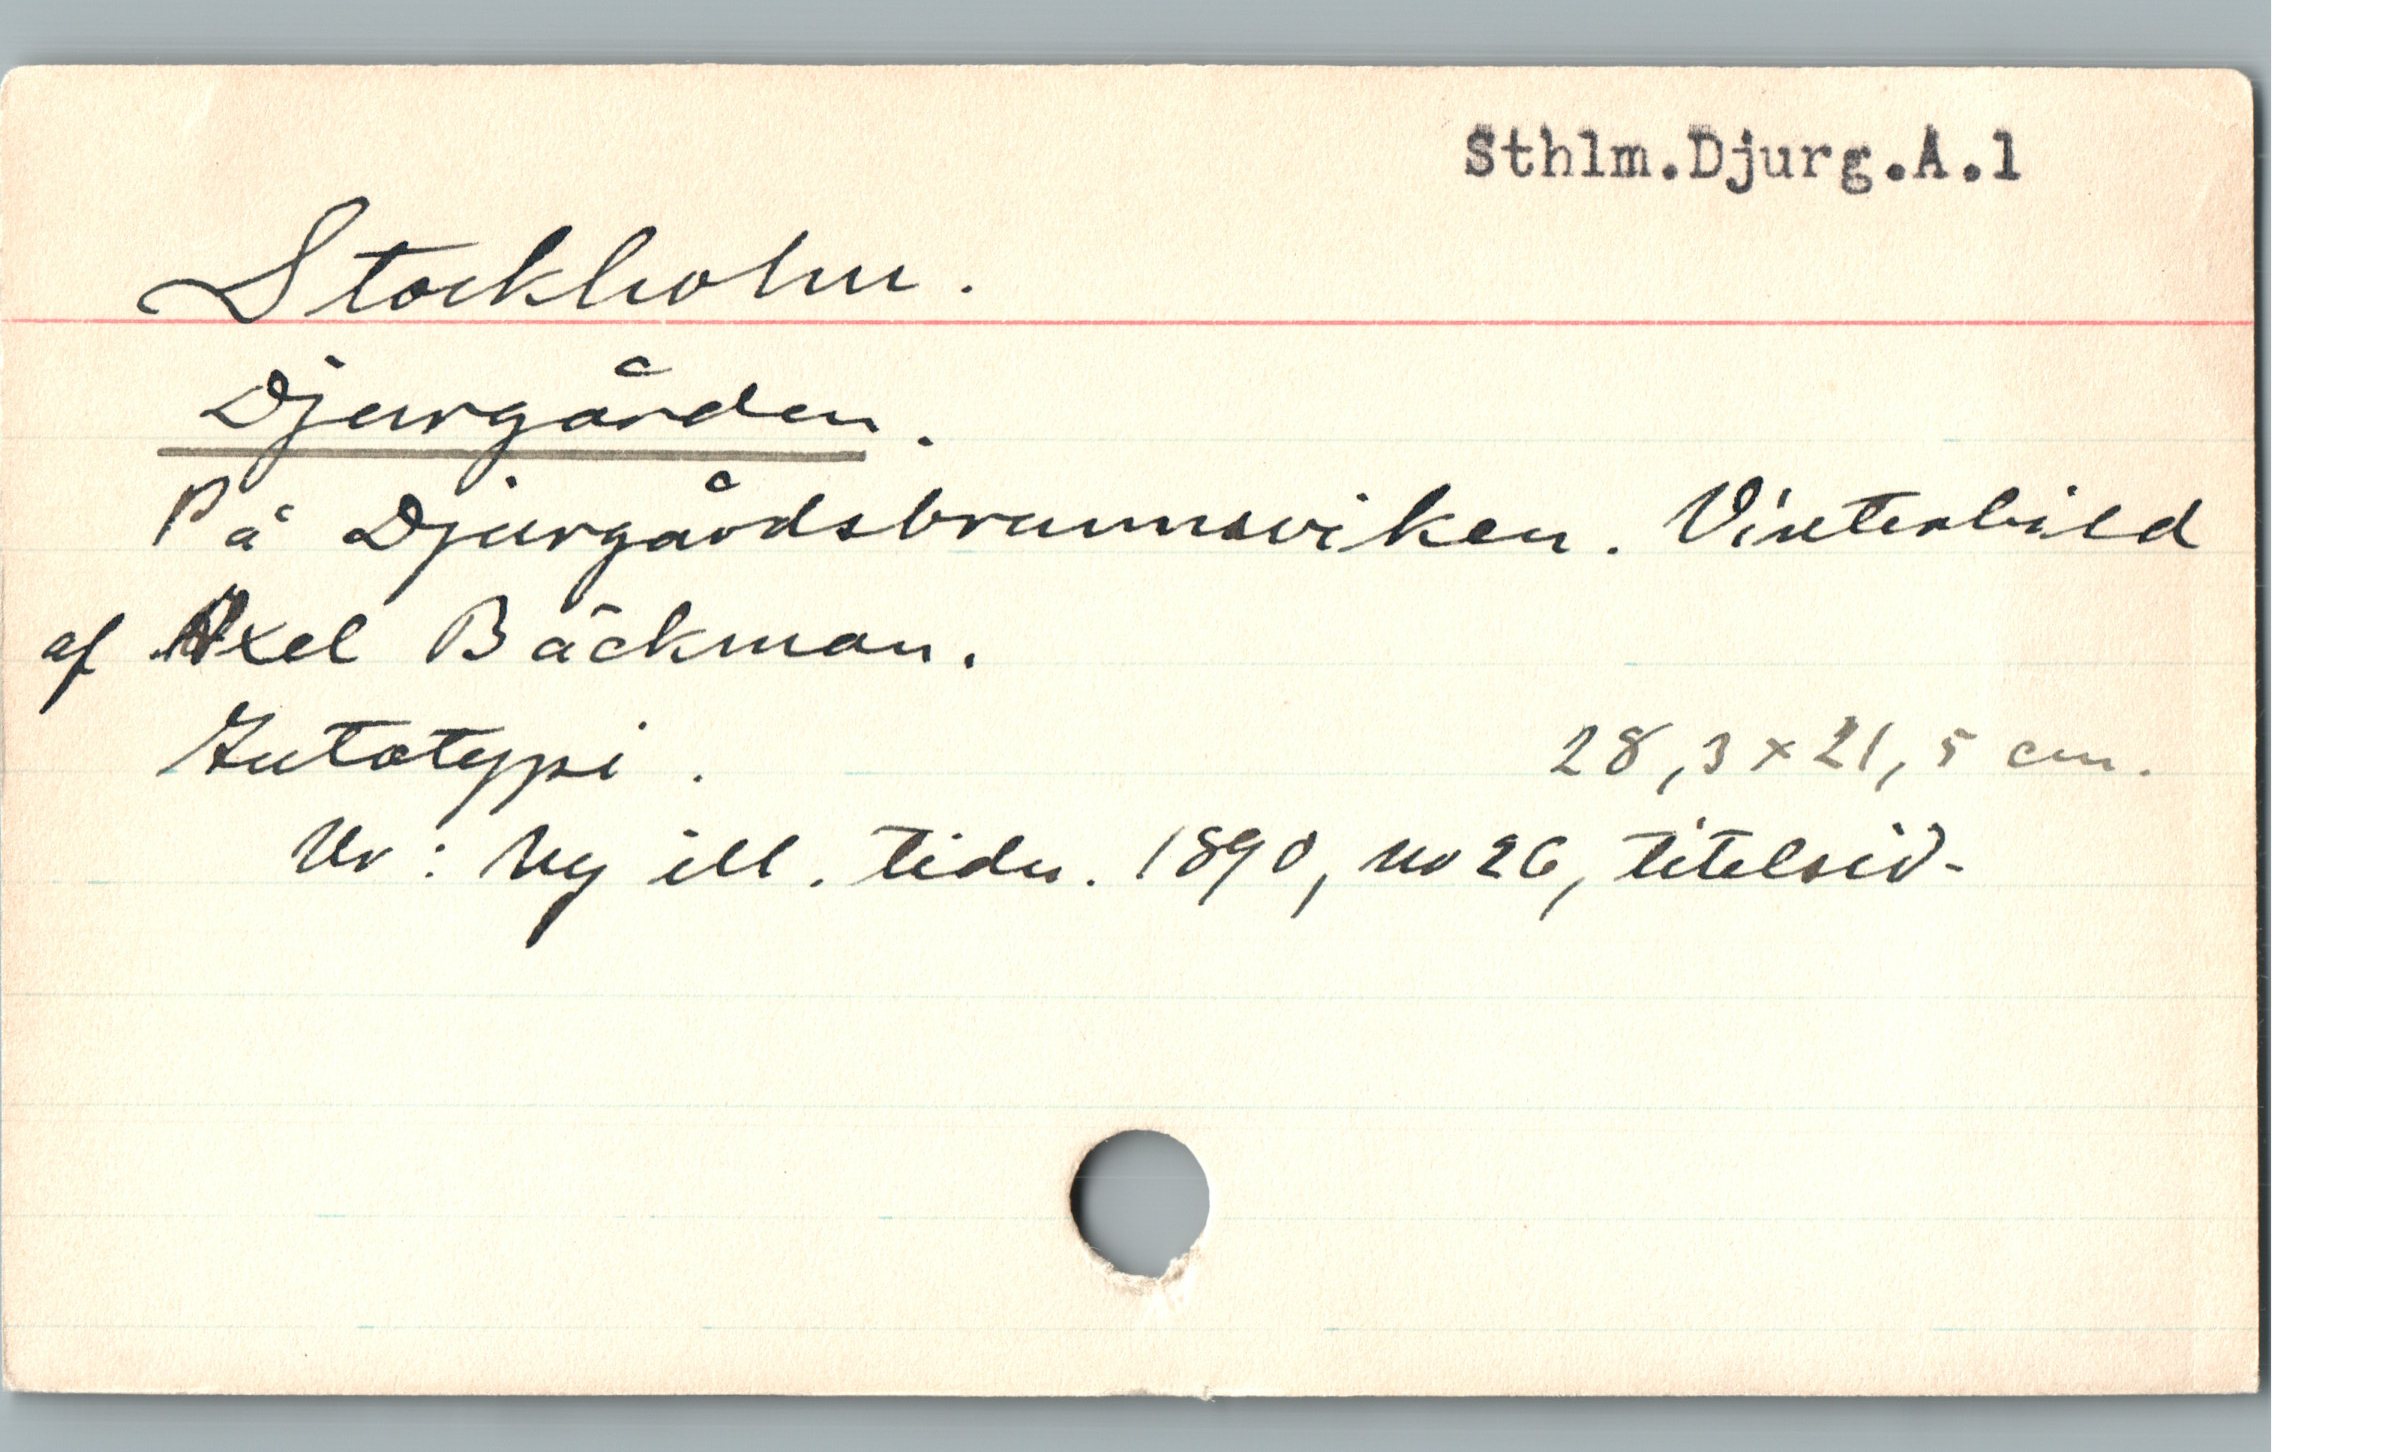 Sthlm.Djurg.A.1
Stockholm.
Djurgården.
På Djurgårdsbrunnsviken. Vinterbild
af Axel Bäckman.
Autotypi. 28,3 x 21,5 cm.
Ur: Ny ill. tidn. 1890, no 26, titelsid-